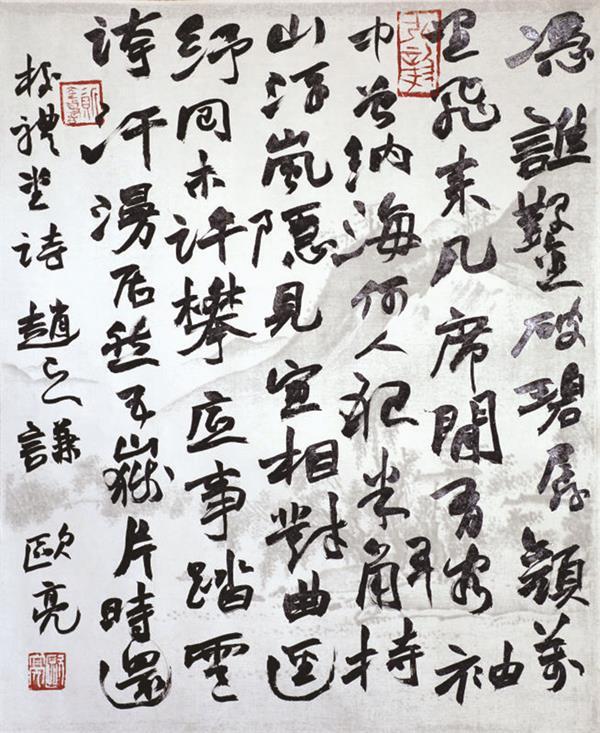 憑誰鑿破碧孱顏萬
里飛來几席間有客袖
中曾納海何人祀米解持
山浮嵐隱見宜相對曲逕
紆回未許攀底事踏雲
誇汗漫居然五嶽片時還
校禮堂詩 趙之謙 歐亮